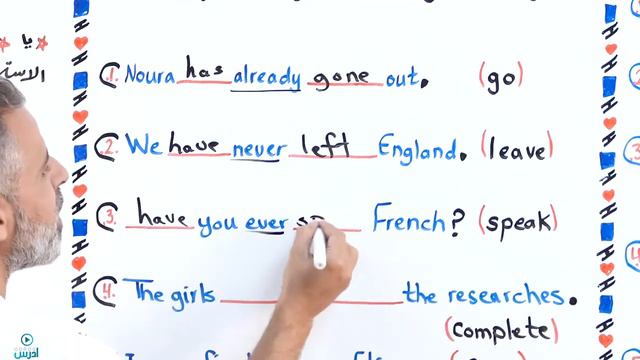 يا
الاست
1. Noura has already gone out. (go)
2. We have never left England. (leave)
3. have you ever sp French? (speak)
4. The girls the researches.
(complete)
ادرس